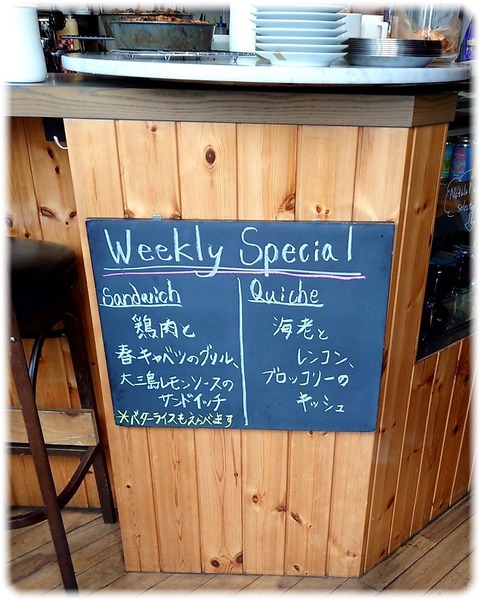 Weekly Special
Sandwich
鶏肉と
春キャベツのグリル、
大三島レモンソースの
サンドイッチ
※バターライスもえらべます
Quiche
海老と
レンコン、
ブロッコリーの
キッシュ